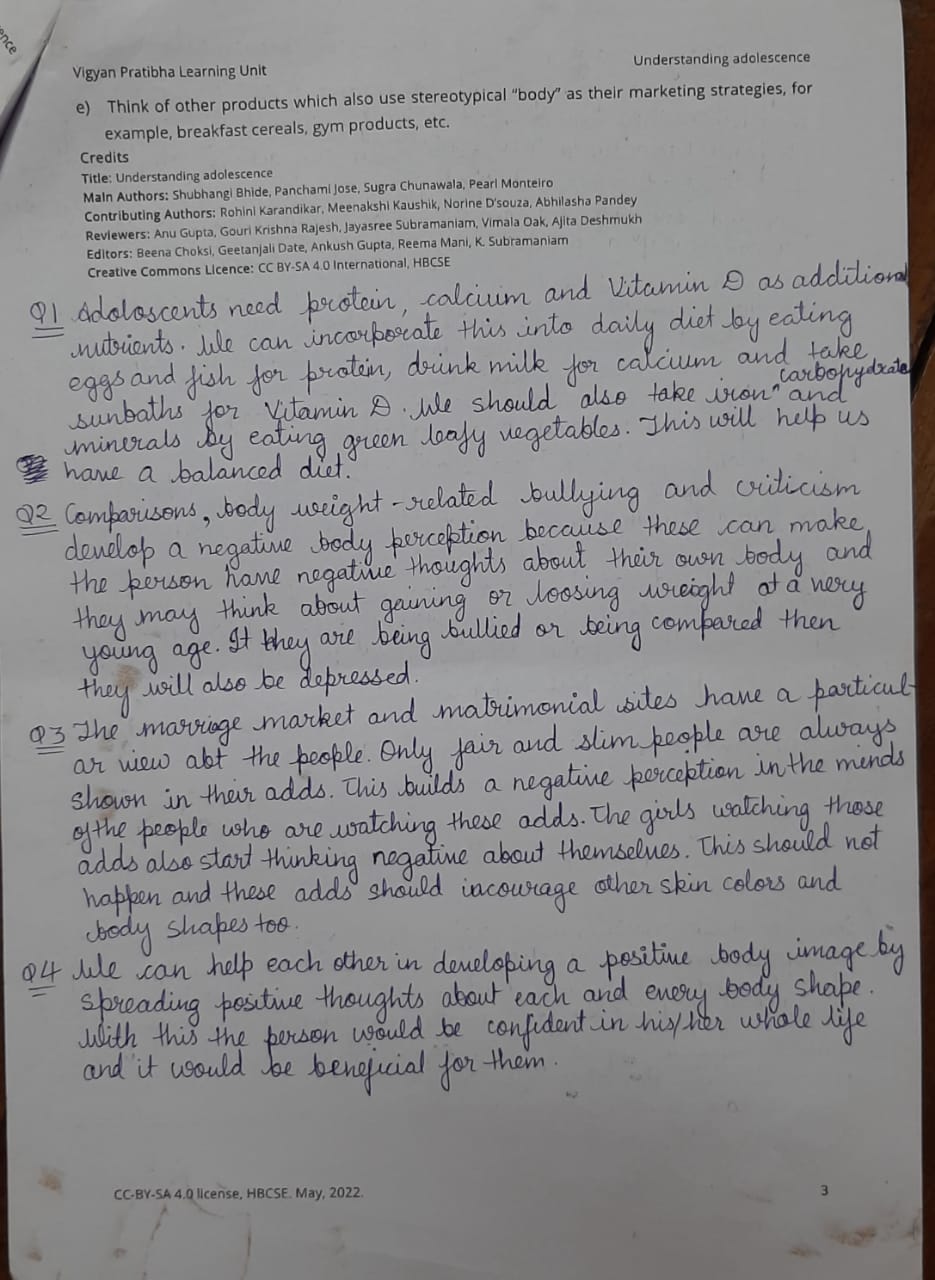 ence
Vigyan Pratibha Learning Unit
Understanding adolescence
e) Think of other products which also use stereotypical “body” as their marketing strategies, for
example, breakfast cereals, gym products, etc.
Credits
Title: Understanding adolescence
Main Authors: Shubhangi Bhide, Panchami Jose, Sugra Chunawala, Pearl Monteiro
Contributing Authors: Rohini Karandikar, Meenakshi Kaushik, Norine D'souza, Abhilasha Pandey
Reviewers: Anu Gupta, Gouri Krishna Rajesh, Jayasree Subramaniam, Vimala Oak, Ajita Deshmukh
Editors: Beena Choksi, Geetanjali Date, Ankush Gupta, Reema Mani, K. Subramaniam
Creative Commons Licence: CC BY-SA 4.0 International, HBCSE
Q1 Adoloscents need protein, calcium and Vitamin D as additional
nutrients. We can incorporate this into daily diet by eating
eggs and fish for protein, drink milk for calcium and take
sunbaths for Vitamin D. We should also take iron, carbohydrate and
minerals by eating green leafy vegetables. This will help us
have a balanced diet.
Q2 Comparisons, body weight-related bullying and criticism
develop a negative body perception because these can make
the person have negative thoughts about their own body and
they may think about gaining or loosing wreight at a very
young age. It they are being bullied or being compared then
they will also be depressed.
Q3 The marriage market and matrimonial sites have a particul-
ar view abt the people. Only fair and slim people are always
shown in their adds. This builds a negative perception in the minds
of the people who are watching these adds. The girls watching those
adds also start thinking negative about themselves. This should not
happen and these adds should incourage other skin colors and
body shapes too.
Q4 We can help each other in developing a positive body image by
spreading positive thoughts about each and every body shape.
With this the person would be confident in his/her whole life
and it would be beneficial for them.
CC-BY-SA 4.0 license, HBCSE. May, 2022.
3